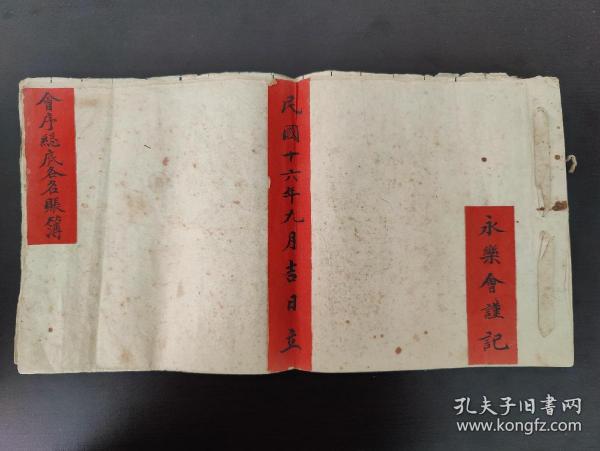 會序總底各名賬簿
民國十六年九月吉日立
永樂會謹記
孔夫子旧书网
www.kongfz.com